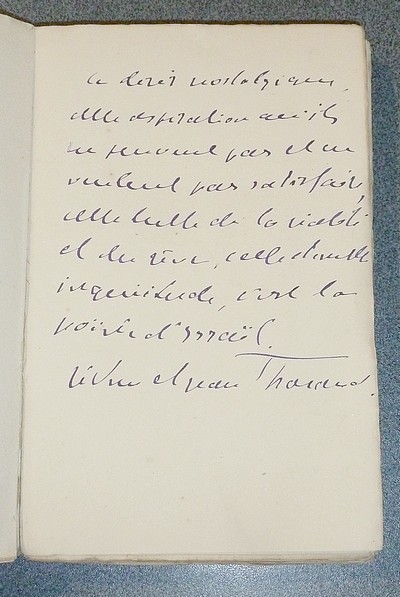 ce désir nostalgique,
cette aspiration qu'ils
ne peuvent pas et ne
veulent pas satisfaire,
cette lutte de la réalité
et du rêve, cette double
inquiétude, c'est la
poésie d'Israël.
Jérôme et Jean Tharaud.